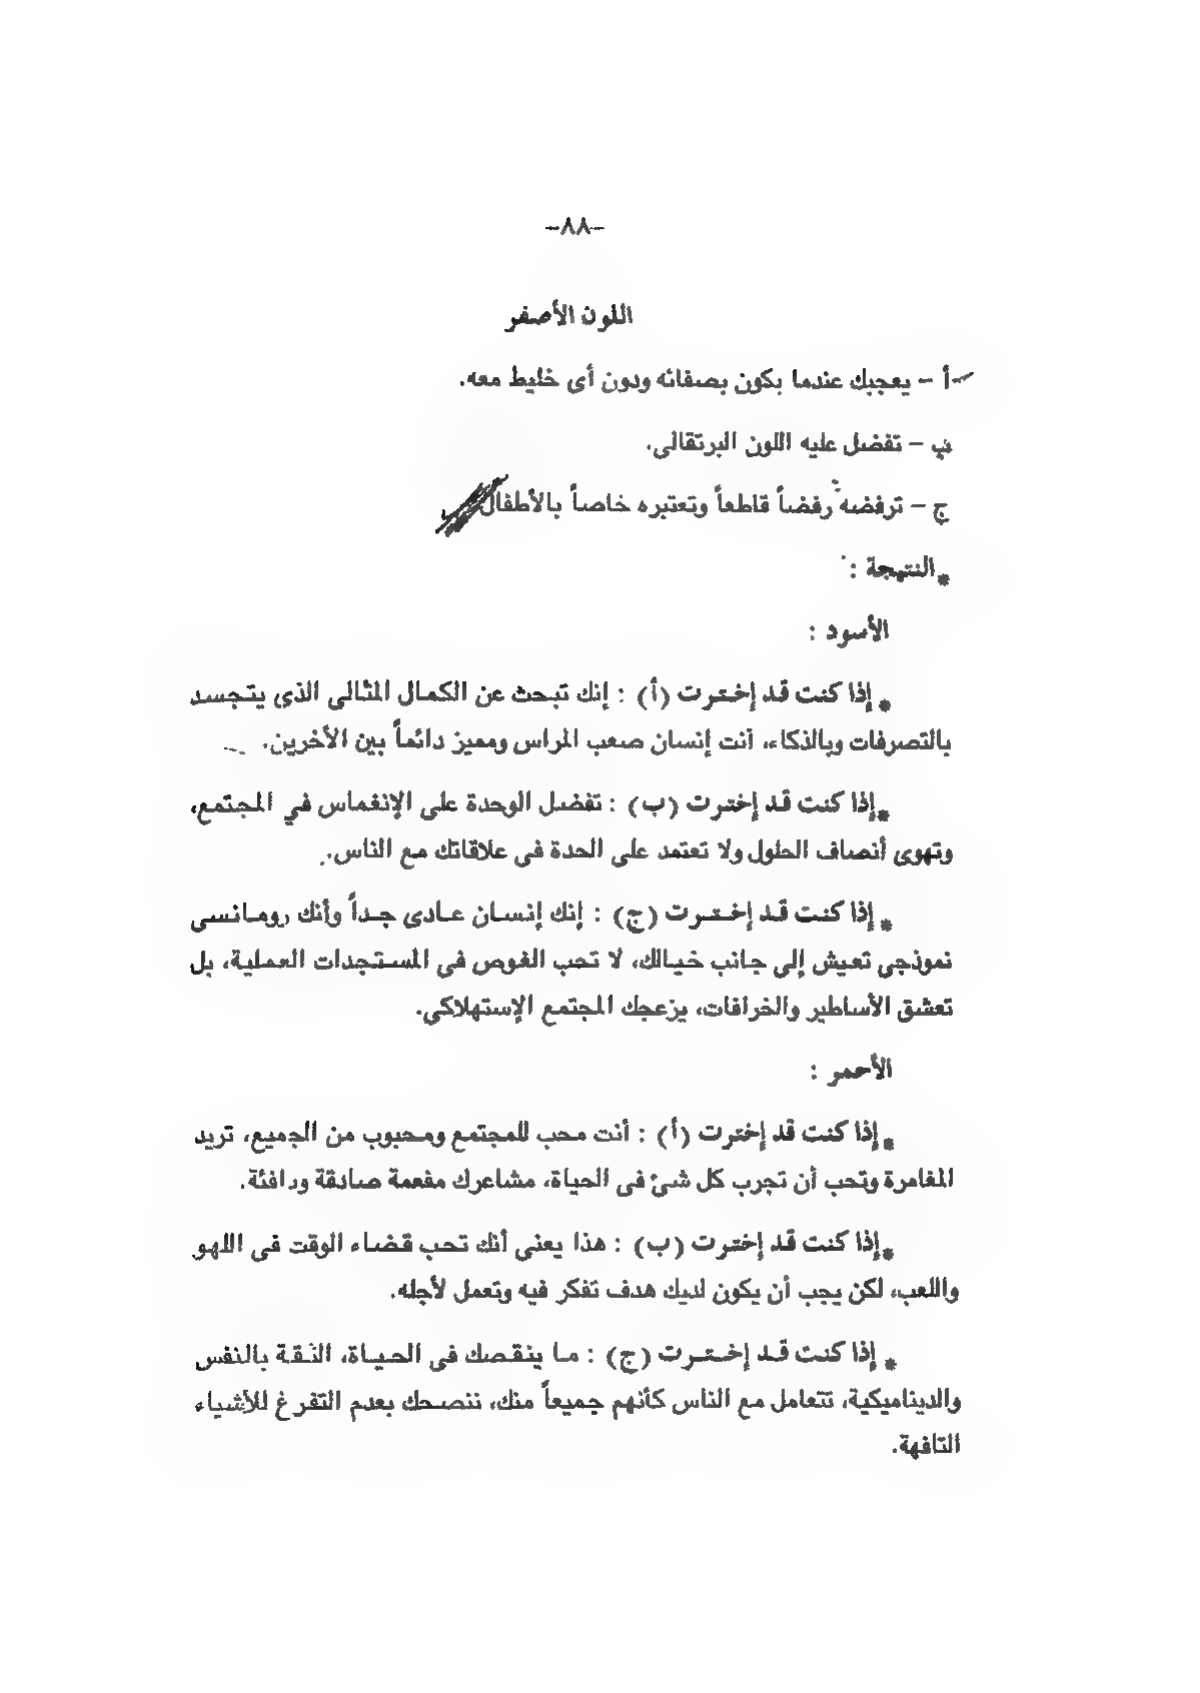 -٨٨-
اللون الأصفر
أ - يعجبك عندما يكون بصفائه ودون أى خليط معه.
ب - تفضل عليه اللون البرتقالى.
ج - ترفضه رفضاً قاطعاً وتعتبره خاصاً بالأطفال
* النتيجة :
الأسود :
* إذا كنت قد إخترت (أ) : إنك تبحث عن الكمال المثالى الذى يتجسد
بالتصرفات وبالذكاء، أنت إنسان صعب المراس ومميز دائماً بين الأخرين.
* إذا كنت قد إخترت (ب) : تفضل الوحدة على الإنغماس في المجتمع،
وتهوى أنصاف الحلول ولا تعتمد على الحدة فى علاقاتك مع الناس.
* إذا كنت قد إخترت (ج) : إنك إنسان عادى جداً وأنك رومانسى
نموذجي تعيش إلى جانب خيالك، لا تحب الغوص فى المستجدات العملية، بل
تعشق الأساطير والخرافات، يزعجك المجتمع الإستهلاكي.
الأحمر :
* إذا كنت قد إخترت (أ) : أنت محب للمجتمع ومحبوب من الجميع، تريد
المغامرة وتحب أن تجرب كل شئ فى الحياة، مشاعرك مفعمة صادقة ودافئة.
* إذا كنت قد إخترت (ب) : هذا يعني أنك تحب قضاء الوقت فى اللهو
واللعب، لكن يجب أن يكون لديك هدف تفكر فيه وتعمل لأجله.
* إذا كنت قد إخترت (ج) : ما ينقصك فى الحياة، الثقة بالنفس
والديناميكية، تتعامل مع الناس كأنهم جميعاً منك، ننصحك بعدم التفرغ للأشياء
التافهة.